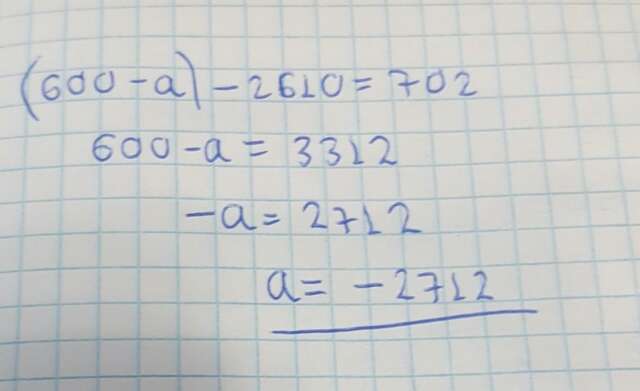 (600-a)-2610=702
600-a=3312
-a=2712
a=-2712